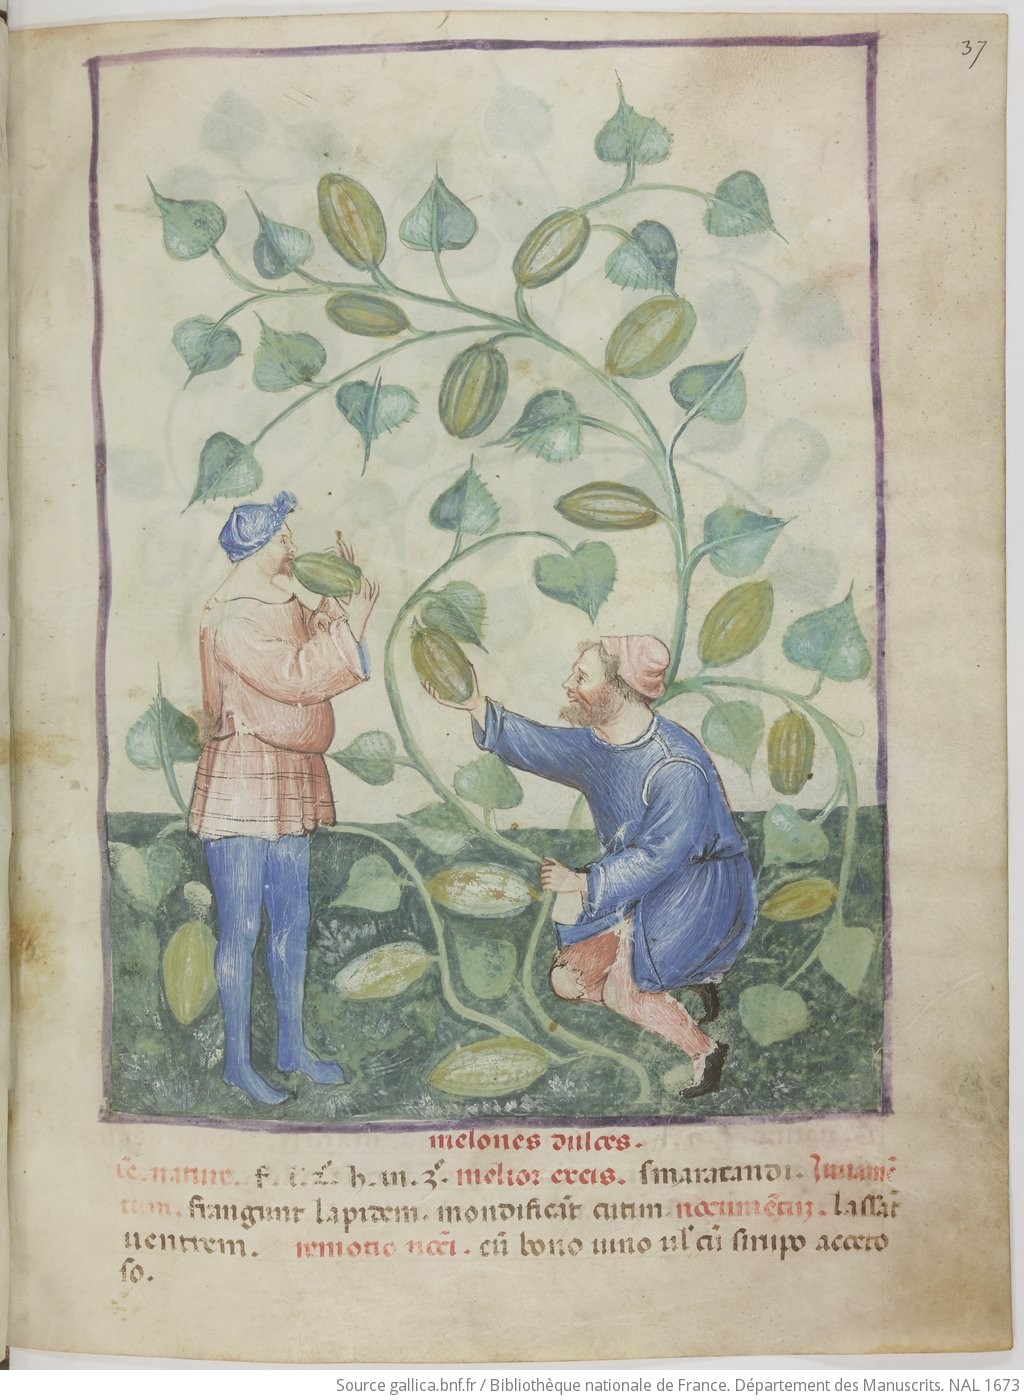 37
melones dulces.
cē. nature. f. i. z̄. h. in. 3°. melior ex eis. smaratandi. Juuamē
tum. frangunt lapidem. mondificāt cutim nocumētuȝ. laxāt
uentrem. remotio nocī. cū bono uino ul' cū sirupo acceto
so.
Source gallica.bnf.fr / Bibliothèque nationale de France. Département des Manuscrits. NAL 1673